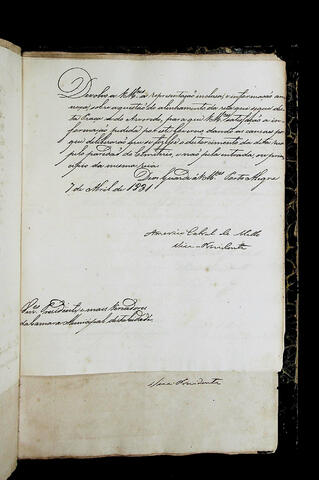 Devolvo a VV.Mces a representação inclusa, e informação an-
nexa, sobre a questão do alinhamento da rua que segue des-
ta Praça a do Arvoredo, para que VV.Mces satisfação a in-
formação pedida por este Governo dando as causas por
que deliberarão que se fizesse o destorcimento da dita rua
pelo paredão do Cemiterio, e não pela entrada, ou prin-
cipio da mesma rua.
Deos Guarde a VV.Mces Porto Alegre
7 de Abril de 1831
Americo Cabral de Mello
Vice-Presidente
Snres Presidente, e mais Vereadores
da Camara Municipal desta Cidade.
Vice Presidente